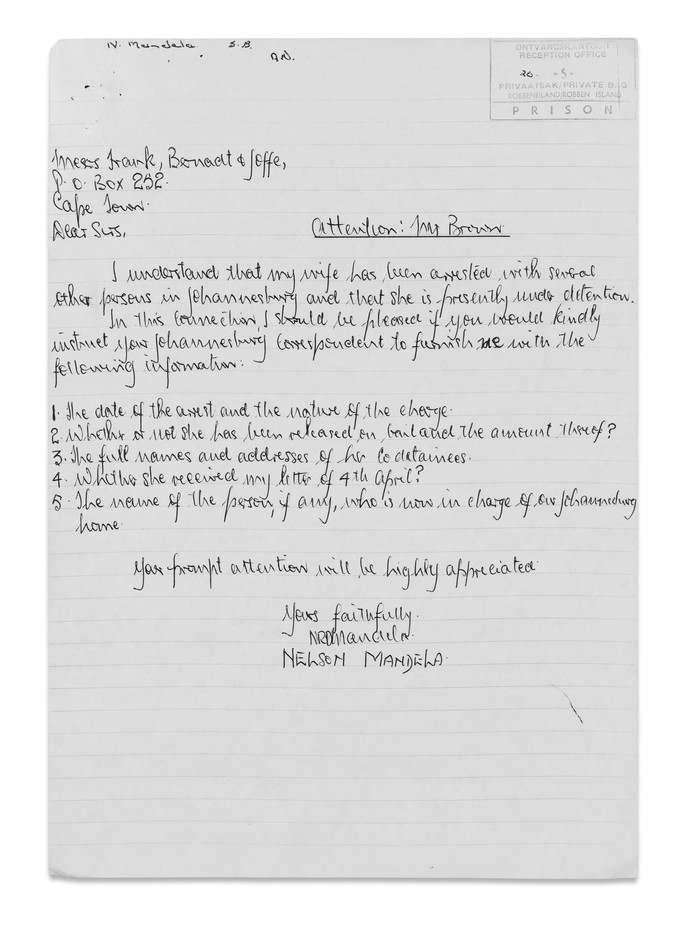 N. Mandela. S.B.
A.N.
ONTVANGSKANTOOR
RECEPTION OFFICE
20. -5-
PRIVAATSAK/PRIVATE BAG
ROBBENEILAND/ROBBEN ISLAND
PRISON
Messrs Frank, Bernadt & Joffe,
P.O. Box 252.
Cape Town.
Dear Sirs,
Attention: Mr Brown
I understand that my wife has been arrested with several
other persons in Johannesburg and that she is presently under detention.
In this connection, I should be pleased if you would kindly
instruct your Johannesburg correspondent to furnish me with the
following information:
1. The date of the arrest and the nature of the charge.
2. Whether or not she has been released on bail and the amount thereof?
3. The full names and addresses of her co detainees.
4. Whether she received my letter of 4th April?
5. The name of the person, if any, who is now in charge of our Johannesburg
home.
Your prompt attention will be highly appreciated.
Yours faithfully.
NRDMandela.
NELSON MANDELA.